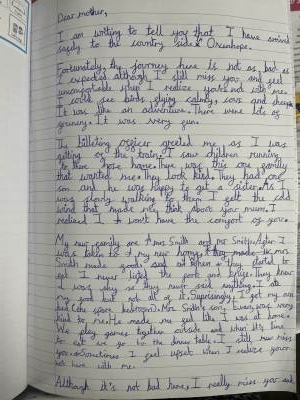 Dear mother,
I am writing to tell you that I have arrived
safely to the country side Oxenhope.
Fortunately, the journey here is not as bad as
I expected although I still miss you and feel
uncomfortable when I realize you're not with me.
I could see birds flying calmly, cows and sheep.
It was like an adventure. There were lots of
greenery. It was very fun.
The billeting officer greeted me as I was
getting of the train. I saw children running
to there new home. there was this one family
that wanted me. They look kind. They had one
son and he was happy to get a sister. As I
was slowly walking to them I felt the cold
wind that made me think about you mum. I
realised I don't have the comfort of you.
My new family are Mrs Smith and mr Smith. After I
was taken to my new home, they made
Smith made goods and started to
eat I never liked the food and They knew
I was shy so they never said anything. I ate
my food but not all of it. Surprisingly, I got my own
bed (the spare bedroom). Mrs Smith's son, Evan, was very
kind to me. He made me feel like I was at home.
We play games together outside and when it's time
to eat we go to the dinner table. I still miss
you. Sometimes I feel upset when I realize your
not here with me.
Although it's not bad here, I really miss you and